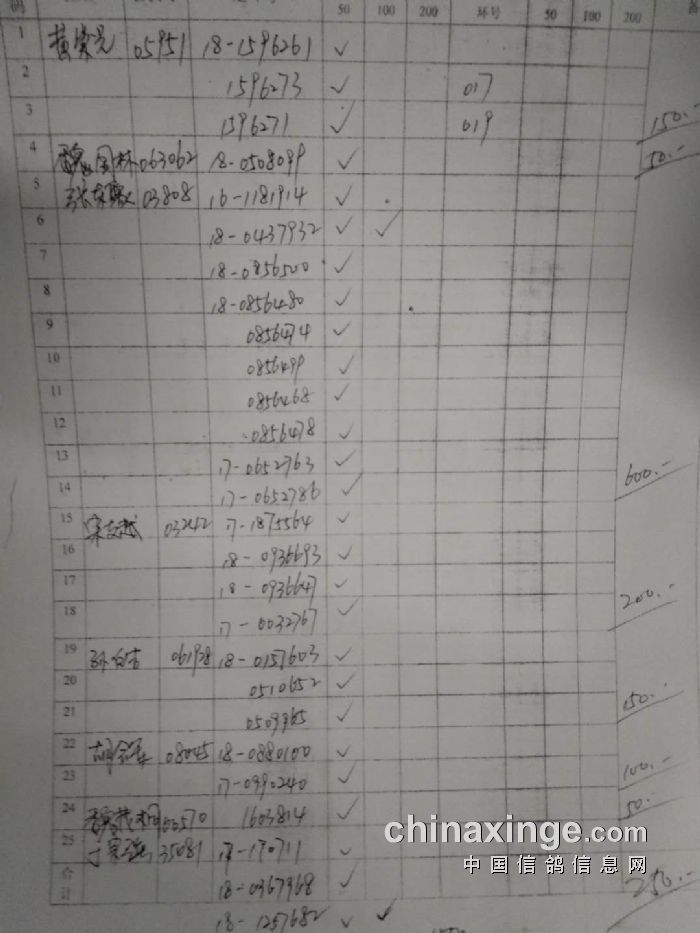 码 50 100 200 环号 50 100 200 备
1 05951 18-1596261 ✓
2 1596273 ✓ 017
3 1596271 ✓ 019 150.-
4 国林 063062 18-0508099 ✓ 50.-
5 03808 16-1181914 ✓
6 18-0437932 ✓ ✓
7 18-0856500 ✓
8 18-0856480 ✓
9 0856474 ✓
10 0856499 ✓
11 0856468 ✓
12 0856478 ✓
13 17-0652763 ✓ 600.-
14 17-0652786 ✓
15 03242 17-1875564 ✓
16 18-0936693 ✓
17 18-0936647 ✓ 200.-
18 17-0032767 ✓
19 061928 18-0157603 ✓
20 0510652 ✓
21 0509965 ✓ 150.-
22 08045 18-0880100 ✓
23 17-0990240 ✓ 100.-
24 00570 1603814 ✓ 50.-
25 35081 18-170711 ✓
合计 18-0367968 ✓ 250.-
18-1257682 ✓ ✓
chinaxinge.com
中国信鸽信息网